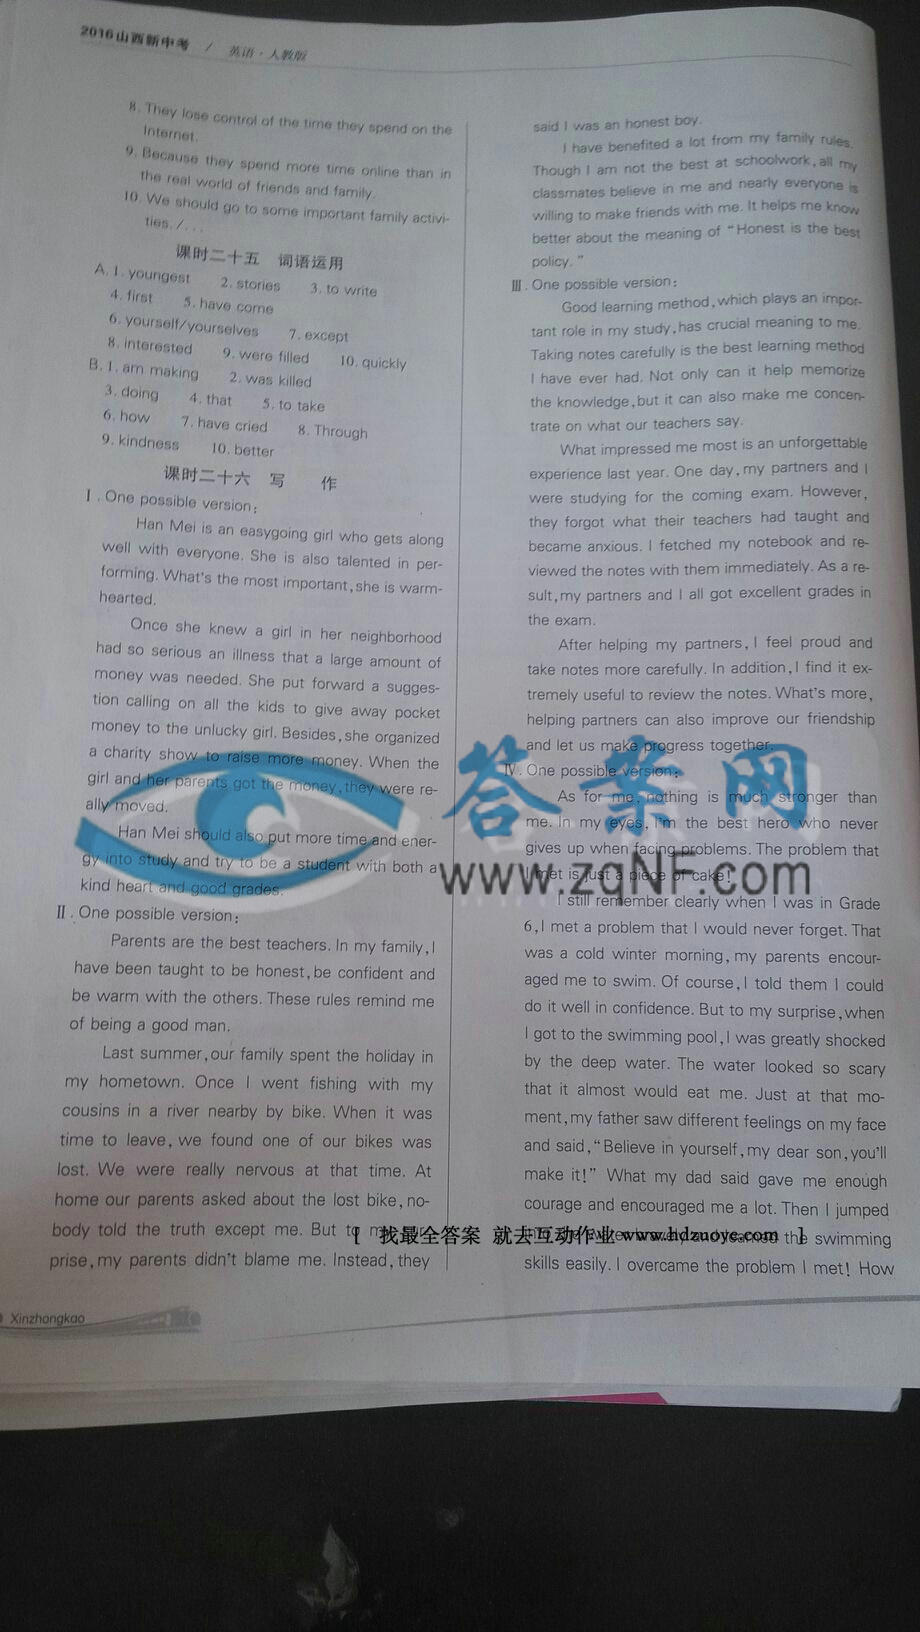 2016山西新中考 / 英语·人教版
8. They lose control of the time they spend on the
Internet.
9. Because they spend more time online than in
the real world of friends and family.
10. We should go to some important family activi-
ties. /...
课时二十五 词语运用
A. 1. youngest 2. stories 3. to write
4. first 5. have come
6. yourself/yourselves 7. except
8. interested 9. were filled 10. quickly
B. 1. am making 2. was killed
3. doing 4. that 5. to take
6. how 7. have cried 8. Through
9. kindness 10. better
课时二十六 写 作
Ⅰ. One possible version:
Han Mei is an easygoing girl who gets along
well with everyone. She is also talented in per-
forming. What's the most important, she is warm-
hearted.
Once she knew a girl in her neighborhood
had so serious an illness that a large amount of
money was needed. She put forward a sugges-
tion calling on all the kids to give away pocket
money to the unlucky girl. Besides, she organized
a charity show to raise more money. When the
girl and her parents got the money, they were re-
ally moved.
Han Mei should also put more time and ener-
gy into study and try to be a student with both a
kind heart and good grades.
Ⅱ. One possible version:
Parents are the best teachers. In my family, I
have been taught to be honest, be confident and
be warm with the others. These rules remind me
of being a good man.
Last summer, our family spent the holiday in
my hometown. Once I went fishing with my
cousins in a river nearby by bike. When it was
time to leave, we found one of our bikes was
lost. We were really nervous at that time. At
home our parents asked about the lost bike, no-
body told the truth except me. But to my sur-
prise, my parents didn't blame me. Instead, they
said I was an honest boy.
I have benefited a lot from my family rules.
Though I am not the best at schoolwork, all my
classmates believe in me and nearly everyone is
willing to make friends with me. It helps me know
better about the meaning of "Honest is the best
policy."
Ⅲ. One possible version:
Good learning method, which plays an impor-
tant role in my study, has crucial meaning to me.
Taking notes carefully is the best learning method
I have ever had. Not only can it help memorize
the knowledge, but it can also make me concen-
trate on what our teachers say.
What impressed me most is an unforgettable
experience last year. One day, my partners and I
were studying for the coming exam. However,
they forgot what their teachers had taught and
became anxious. I fetched my notebook and re-
viewed the notes with them immediately. As a re-
sult, my partners and I all got excellent grades in
the exam.
After helping my partners, I feel proud and
take notes more carefully. In addition, I find it ex-
tremely useful to review the notes. What's more,
helping partners can also improve our friendship
and let us make progress together.
Ⅳ. One possible version:
As for me, nothing is much stronger than
me. In my eyes, I'm the best hero who never
gives up when facing problems. The problem that
I met is just a piece of cake!
I still remember clearly when I was in Grade
6, I met a problem that I would never forget. That
was a cold winter morning, my parents encour-
aged me to swim. Of course, I told them I could
do it well in confidence. But to my surprise, when
I got to the swimming pool, I was greatly shocked
by the deep water. The water looked so scary
that it almost would eat me. Just at that mo-
ment, my father saw different feelings on my face
and said, "Believe in yourself, my dear son, you'll
make it!" What my dad said gave me enough
courage and encouraged me a lot. Then I jumped
the swimming
skills easily. I overcame the problem I met! How
Xinzhongkao
答案网
www.zqNF.com
[ 找最全答案 就去互动作业 www.hdzuoye.com ]